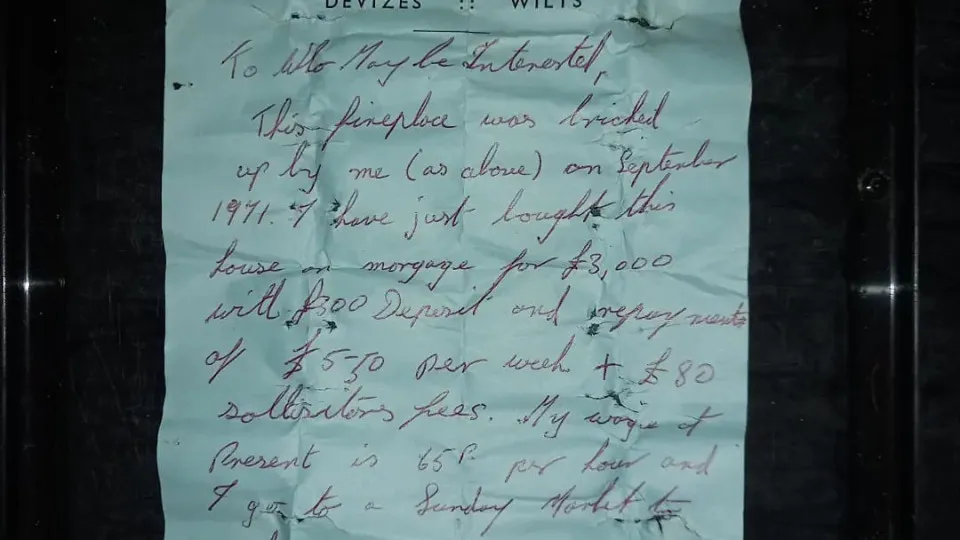 DEVIZES :: WILTS
To Who May be Interested,
This fireplace was bricked
up by me (as above) on September
1971. I have just bought this
house on morgage for £3,000
with £300 Deposit and repayments
of £5-50 per week + £80
sollisitors fees. My wage at
Present is 65P. per hour and
I go to a Sunday Market to